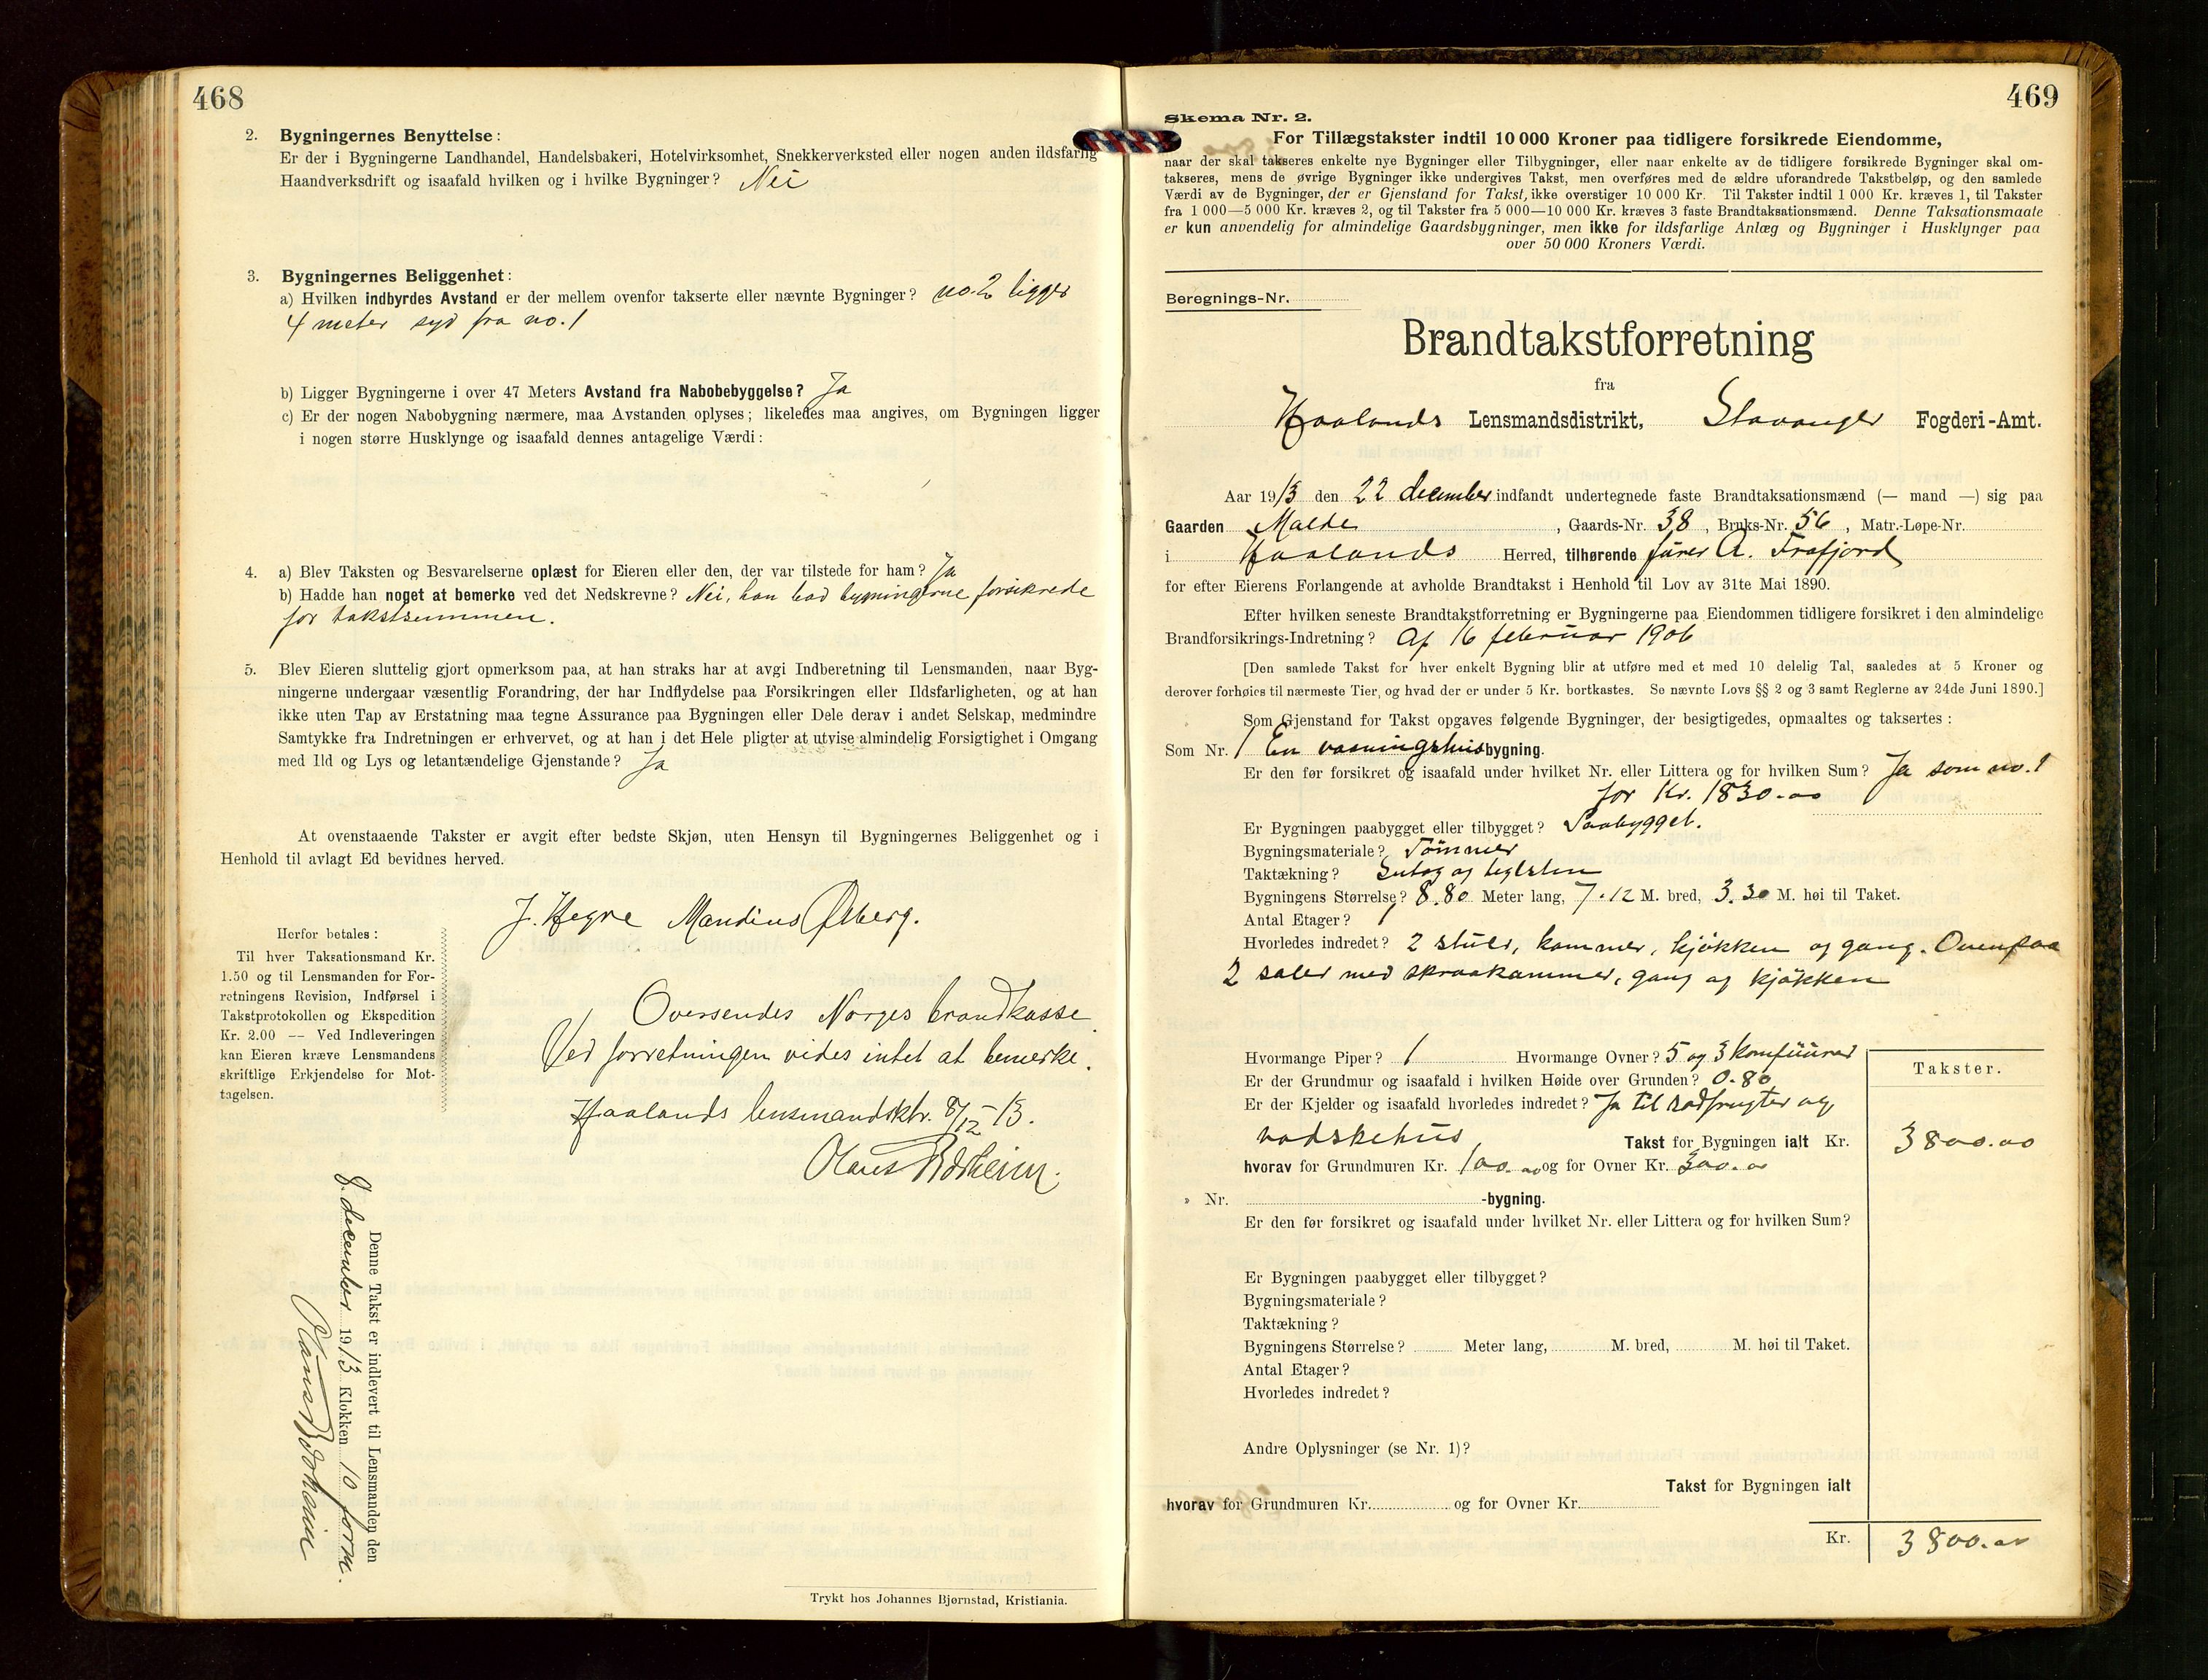 468
2. Bygningernes Benyttelse:
Er der i Bygningerne Landhandel, Handelsbakeri, Hotelvirksomhet, Snekkerverksted eller nogen anden ildsfarlig
Haandverksdrift og isaafald hvilken og i hvilke Bygninger? Nei
3. Bygningernes Beliggenhet:
a) Hvilken indbyrdes Avstand er der mellem ovenfor takserte eller nævnte Bygninger? no. 2 ligger
4 meter syd fra no. 1
b) Ligger Bygningerne i over 47 Meters Avstand fra Nabobebyggelse? Ja
c) Er der nogen Nabobygning nærmere, maa Avstanden oplyses; likeledes maa angives, om Bygningen ligger
i nogen større Husklynge og isaafald dennes antagelige Værdi:
4. a) Blev Taksten og Besvarelserne oplæst for Eieren eller den, der var tilstede for ham? Ja
b) Hadde han noget at bemerke ved det Nedskrevne? Nei, han bad bygningerne forsikrede
for takstsummen.
5. Blev Eieren sluttelig gjort opmerksom paa, at han straks har at avgi Indberetning til Lensmanden, naar Byg-
ningerne undergaar væsentlig Forandring, der har Indflydelse paa Forsikringen eller Ildsfarligheten, og at han
ikke uten Tap av Erstatning maa tegne Assurance paa Bygningen eller Dele derav i andet Selskap, medmindre
Samtykke fra Indretningen er erhvervet, og at han i det Hele pligter at utvise almindelig Forsigtighet i Omgang
med Ild og Lys og letantændelige Gjenstande? Ja
At ovenstaaende Takster er avgit efter bedste Skjøn, uten Hensyn til Bygningernes Beliggenhet og i
Henhold til avlagt Ed bevidnes herved.
J. Hegre Mandius Østberg.
Herfor betales:
Til hver Taksationsmand Kr.
1.50 og til Lensmanden for For-
retningens Revision, Indførsel i
Takstprotokollen og Ekspedition
Kr. 2.00 — Ved Indleveringen
kan Eieren kræve Lensmandens
skriftlige Erkjendelse for Mot-
tagelsen.
Oversendes Norges brandkasse.
Ved forretningen vides intet at bemerke.
Haalands lensmandsktr. 8/12-13.
Olaus
Denne Takst er indlevert til Lensmanden den
8 december 1913 Klokken 10 form.
Olaus
Trykt hos Johannes Bjørnstad, Kristiania.
469
Skema Nr. 2.
For Tillægstakster indtil 10 000 Kroner paa tidligere forsikrede Eiendomme,
naar der skal takseres enkelte nye Bygninger eller Tilbygninger, eller naar enkelte av de tidligere forsikrede Bygninger skal om-
takseres, mens de øvrige Bygninger ikke undergives Takst, men overføres med de ældre uforandrede Takstbeløp, og den samlede
Værdi av de Bygninger, der er Gjenstand for Takst, ikke overstiger 10 000 Kr. Til Takster indtil 1 000 Kr. kræves 1, til Takster
fra 1 000—5 000 Kr. kræves 2, og til Takster fra 5 000—10 000 Kr. kræves 3 faste Brandtaksationsmænd. Denne Taksationsmaate
er kun anvendelig for almindelige Gaardsbygninger, men ikke for ildsfarlige Anlæg og Bygninger i Husklynger paa
over 50 000 Kroners Værdi.
Beregnings-Nr.
Brandtakstforretning
fra
Haalands Lensmandsdistrikt, Stavanger Fogderi-Amt.
Aar 1913 den 22 december indfandt undertegnede faste Brandtaksationsmænd (— mand —) sig paa
Gaarden Malde, Gaards-Nr. 38, Bruks-Nr. 56, Matr.-Løpe-Nr.
i Haalands Herred, tilhørende fører A. Frafjord
for efter Eierens Forlangende at avholde Brandtakst i Henhold til Lov av 31te Mai 1890.
Efter hvilken seneste Brandtakstforretning er Bygningerne paa Eiendommen tidligere forsikret i den almindelige
Brandforsikrings-Indretning? Af 16 februar 1906
[Den samlede Takst for hver enkelt Bygning blir at utføre med et med 10 delelig Tal, saaledes at 5 Kroner og
derover forhøies til nærmeste Tier, og hvad der er under 5 Kr. bortkastes. Se nævnte Lovs §§ 2 og 3 samt Reglerne av 24de Juni 1890.]
Som Gjenstand for Takst opgaves følgende Bygninger, der besigtigedes, opmaaltes og taksertes:
Som Nr. 1 En vaaningshusbygning.
Er den før forsikret og isaafald under hvilket Nr. eller Littera og for hvilken Sum? Ja som no. 1
for Kr. 1830.00
Er Bygningen paabygget eller tilbygget? Paabygget.
Bygningsmateriale? Tømmer
Taktækning? Sutag og teglsten
Bygningens Størrelse? 8.80 Meter lang, 7.12 M. bred, 3.30 M. høi til Taket.
Antal Etager? 1
Hvorledes indredet? 2 stuer, kammer, kjøkken og gang. Ovenpaa
2 saler med skraakammer, gang og kjøkken
Hvormange Piper? 1 Hvormange Ovner? 5 og 3 komfüürer
Er der Grundmur og isaafald i hvilken Høide over Grunden? 0.80
Er der Kjelder og isaafald hvorledes indredet? Ja til rodfrugter og
vadskehus,
Takst for Bygningen ialt Kr.
Takster.
3800.00
hvorav for Grundmuren Kr. 100.00 og for Ovner Kr. 300.00
» Nr. -bygning.
Er den før forsikret og isaafald under hvilket Nr. eller Littera og for hvilken Sum?
Er Bygningen paabygget eller tilbygget?
Bygningsmateriale?
Taktækning?
Bygningens Størrelse? Meter lang, M. bred, M. høi til Taket.
Antal Etager?
Hvorledes indredet?
Andre Oplysninger (se Nr. 1)?
Takst for Bygningen ialt
hvorav for Grundmuren Kr. og for Ovner Kr.
Kr. 3800.00